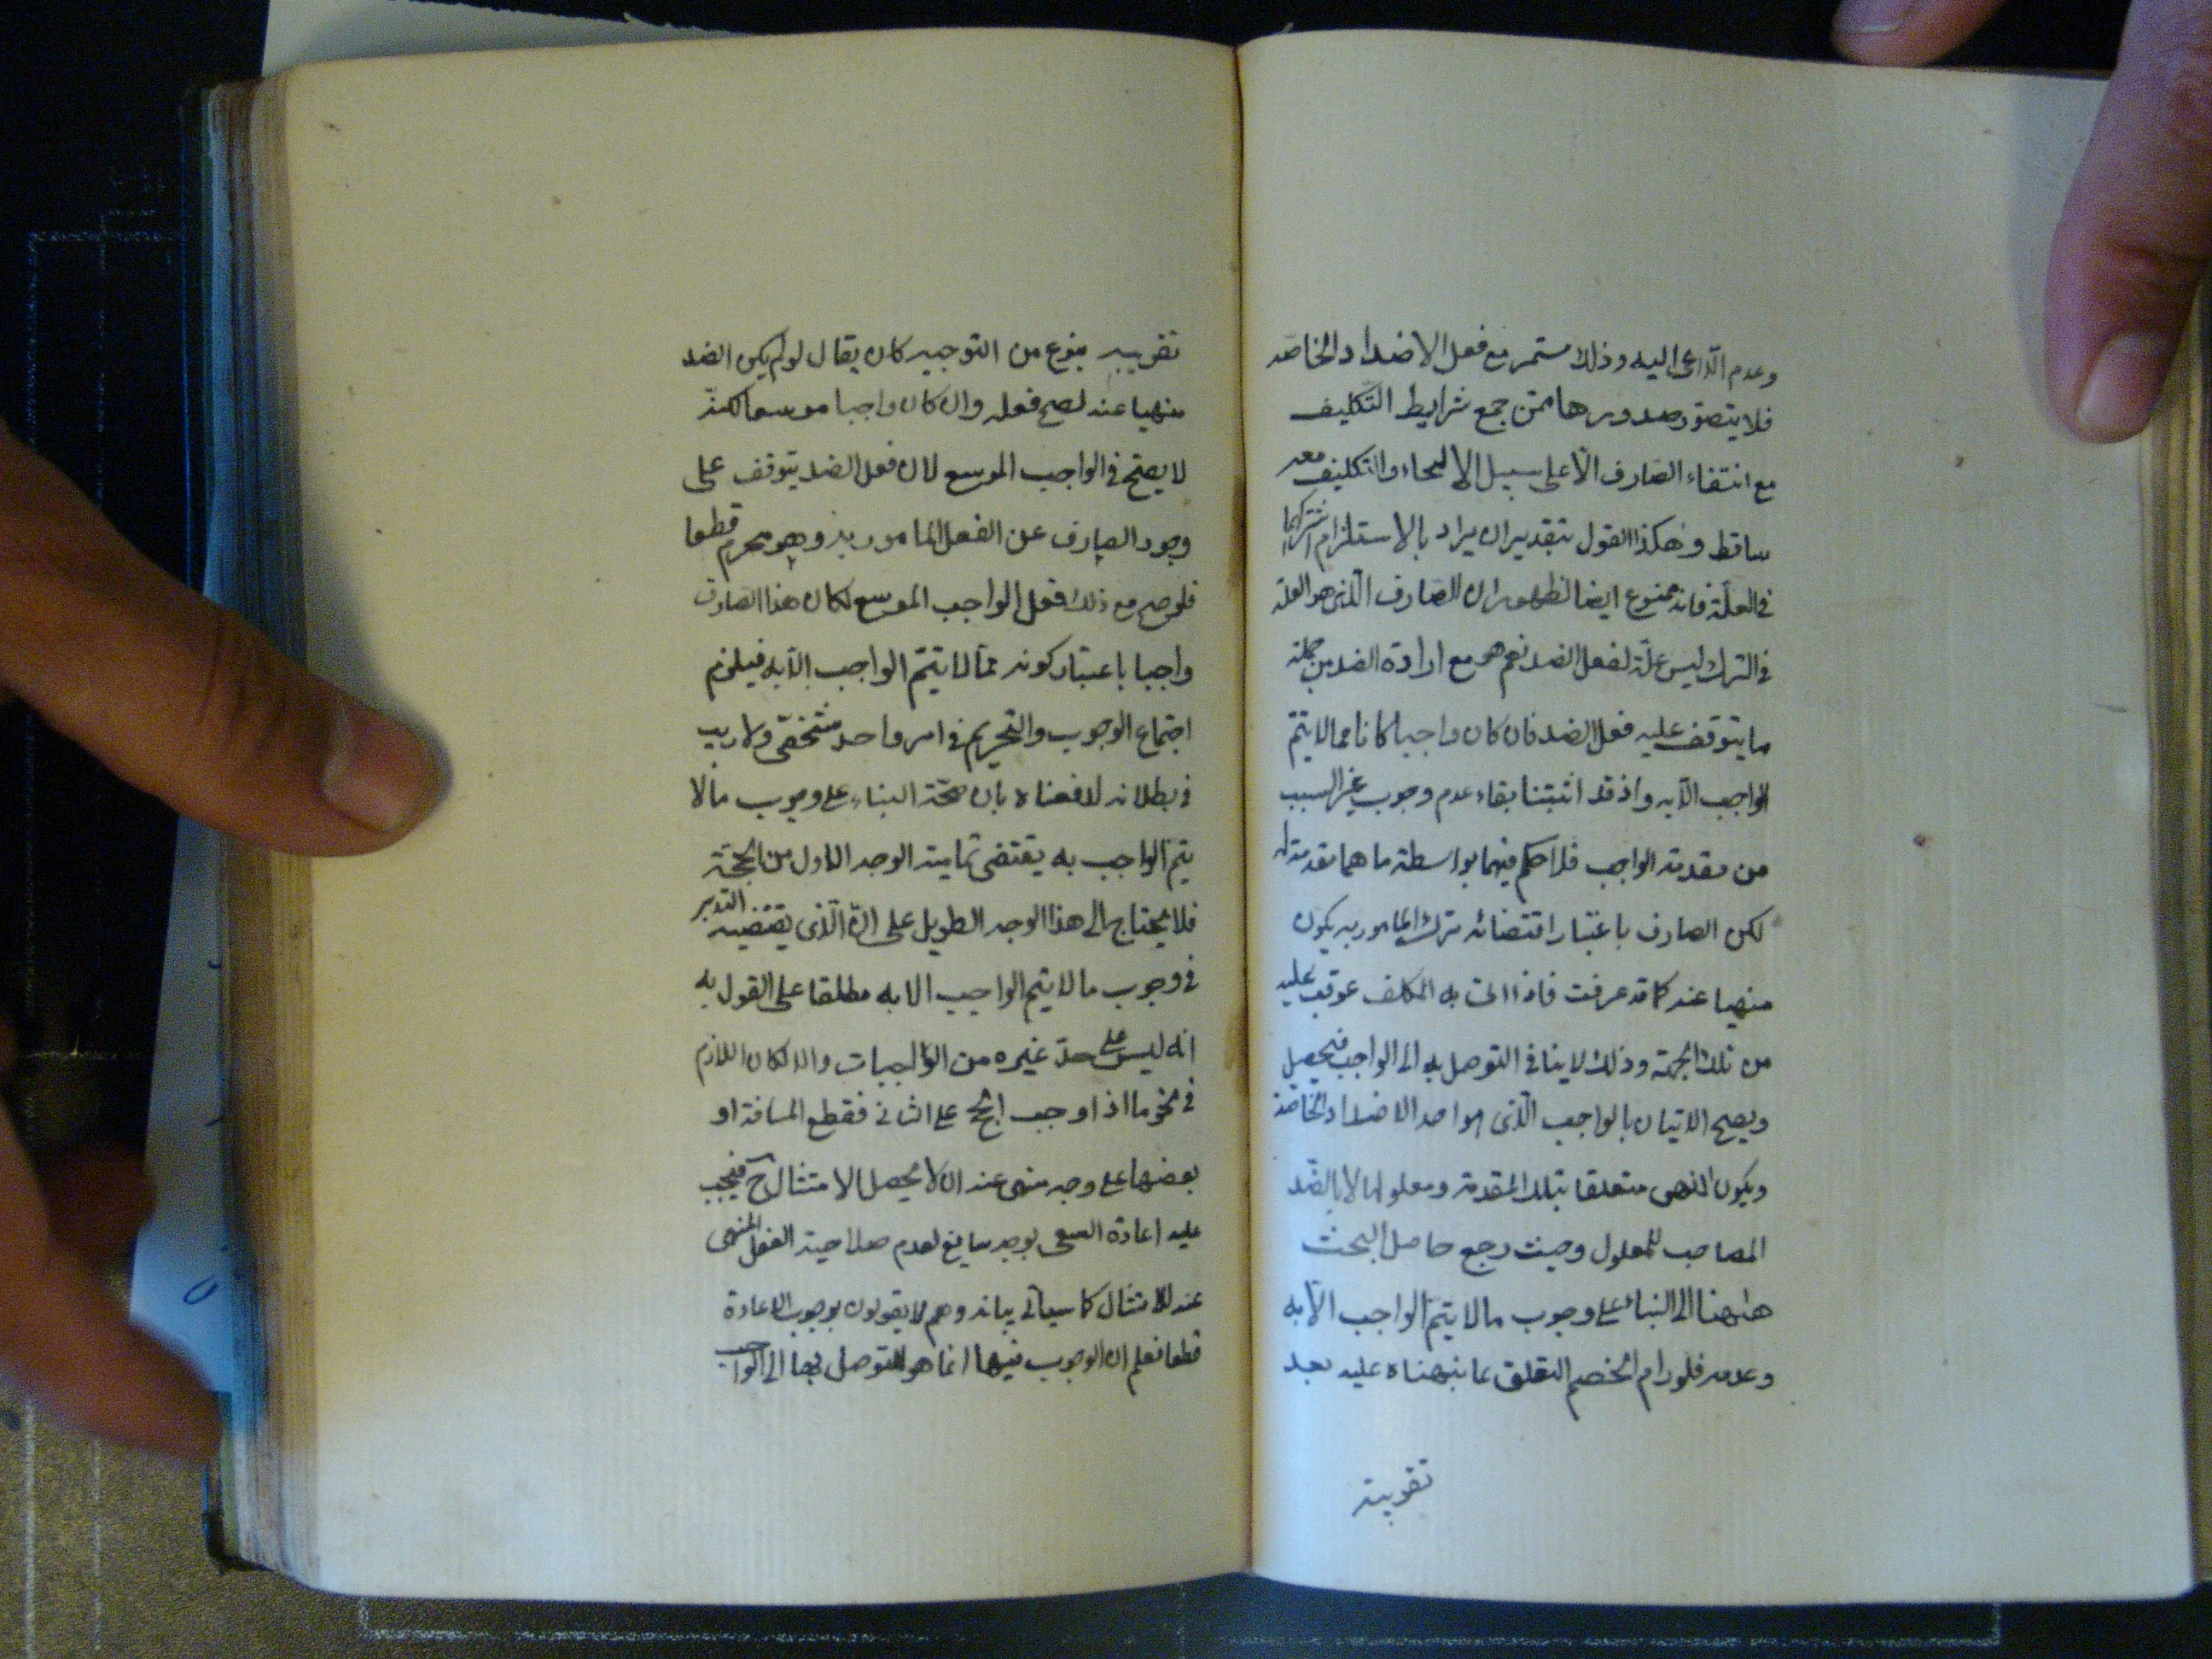 وعدم الدّاعى اليه وذلك مستمر مع فعل الاضداد الخاصّه
فلا يتصوّر صدورها ممّن جمع شرايط التّكليف
مع انتفاء الصّارف الّا على سبيل الالجاء والتكليف معه
ساقط وهكذا القول بتقدير ان يراد بالاستلزام اشتراكهما
في العلّة فانه ممنوع ايضا لظهور ان الصّارف الّذى هو العلّة
في الترك ليس علّة لفعل الضد نعم هو مع ارادة الضد من جملة
ما يتوقف عليه فعل الضد فان كان واجبا كانا مما لا يتمّ
الواجب الّا به واذ قد اثبتنا بقاء عدم وجوب غير السبب
من مقدمة الواجب فلا حكم فيهما بواسطة ما هما مقدمة له
لكن الصارف باعتبار اقتضائه ترك المامور به يكون
منهيا عنه كما قد عرفت فاذا اتى به المكلف عوقب عليه
من تلك الجهة وذلك لا ينافى التوصل به الى الواجب فيحصل
ويصح الاتيان بالواجب الّذى هو احد الاضداد الخاصّة
ويكون النهى متعلقا بتلك المقدمة ومعلولها لا بالضّد
المصاحب للمعلول وحيث رجع حاصل البحث
هٰهنا الى البناء على وجوب ما لا يتمّ الواجب الّا به
وعدمه فلو رام الخصم التعلق بما نبهناه عليه بعد
تقريبه
تقريبه بنوع من التوجيه كان يقال لو لم يكن الضد
منهيا عنه لصح فعله وان كان واجبا موسعا لكنّه
لا يصحّ في الواجب الموسع لان فعل الضد يتوقف على
وجود الصارف عن الفعل المامور به وهو محرم قطعا
فلو صح مع ذلك فعل الواجب الموسع لكان هذا الصارف
واجبا باعتبار كونه ممّا لا يتمّ الواجب الّا به فيلزم
اجتماع الوجوب والتحريم في امر واحد شخصى ولا ريب
في بطلانه لدفعناه بان صحّة البناء على وجوب ما لا
يتم الواجب به يقتضى تمامية الوجه الاول من الحجّة
فلا يحتاج الى هذا الوجه الطويل على انّ الّذى يقتضيه التدبر
في وجوب ما لا يتم الواجب الا به مطلقا على القول به
انه ليس على حدّ غيره من الواجبات والا لكان اللازم
في نحو ما اذا وجب الحج على النائى فقطع المسافة او
بعضها على وجه منهى عنه ان لا يحصل الامتثال ح فيجب
عليه اعادة السعى بوجه سايغ لعدم صلاحية الفعل المنهى
عنه للامتثال كما سيأتى بيانه وهم لا يقولون بوجوب الاعادة
قطعا فعلم ان الوجوب فيها انما هو للتوصل بها الى الواجب